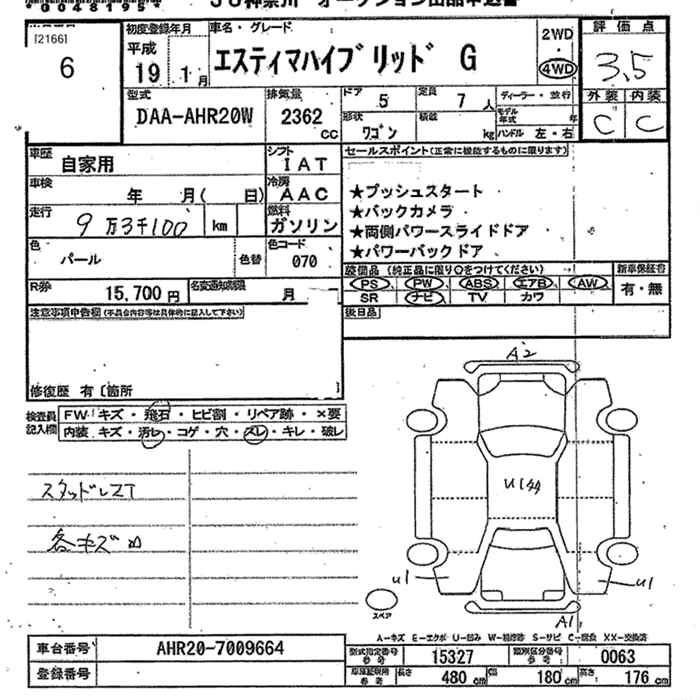 *00481951*
JU神奈川 オークション出品申込書
[2166]
6
初度登録年月
平成
19 1月
車名・グレード
エスティマハイブリッド G
2WD
4WD
評価点
3.5
型式
DAA-AHR20W
排気量
2362
cc
ドア 5
定員 7人
ディーラー・並行
モデル年式 年
形状 ワゴン
積載 kg
ハンドル 左・右
外装 内装
C C
車歴
自家用
シフト
IAT
セールスポイント(正常に機能するものに限ります)
車検
年 月( 日)
冷房
AAC
★プッシュスタート
★バックカメラ
★両側パワースライドドア
★パワーバックドア
走行
9万3千100 km
燃料
ガソリン
色
パール
色替
色コード
070
装備品(純正品に限り○をつけてください)
新車保証書
PS PW ABS エアB AW
有・無
SR ナビ TV カワ
R券
15,700円
名変通知期限
月
後日品
注意事項申告欄(不具合内容等は具体的に記入して下さい)
修復歴 有〔箇所
検査員記入欄
FW キズ・飛石・ヒビ割・リペア跡・×要
内装 キズ・汚れ・コゲ・穴・スレ・キレ・破レ
スタッドレスT
各キズ凹
A2
U1
U1
U1
A1
スペア
A-キズ E-エクボ U-凹み W-補修跡 S-サビ C-腐食 XX-交換済
車台番号
AHR20-7009664
型式指定番号
参考
15327
類別区分番号
参考
0063
登録番号
車庫証明用
参考
長さ 480cm
幅 180cm
高さ 176cm